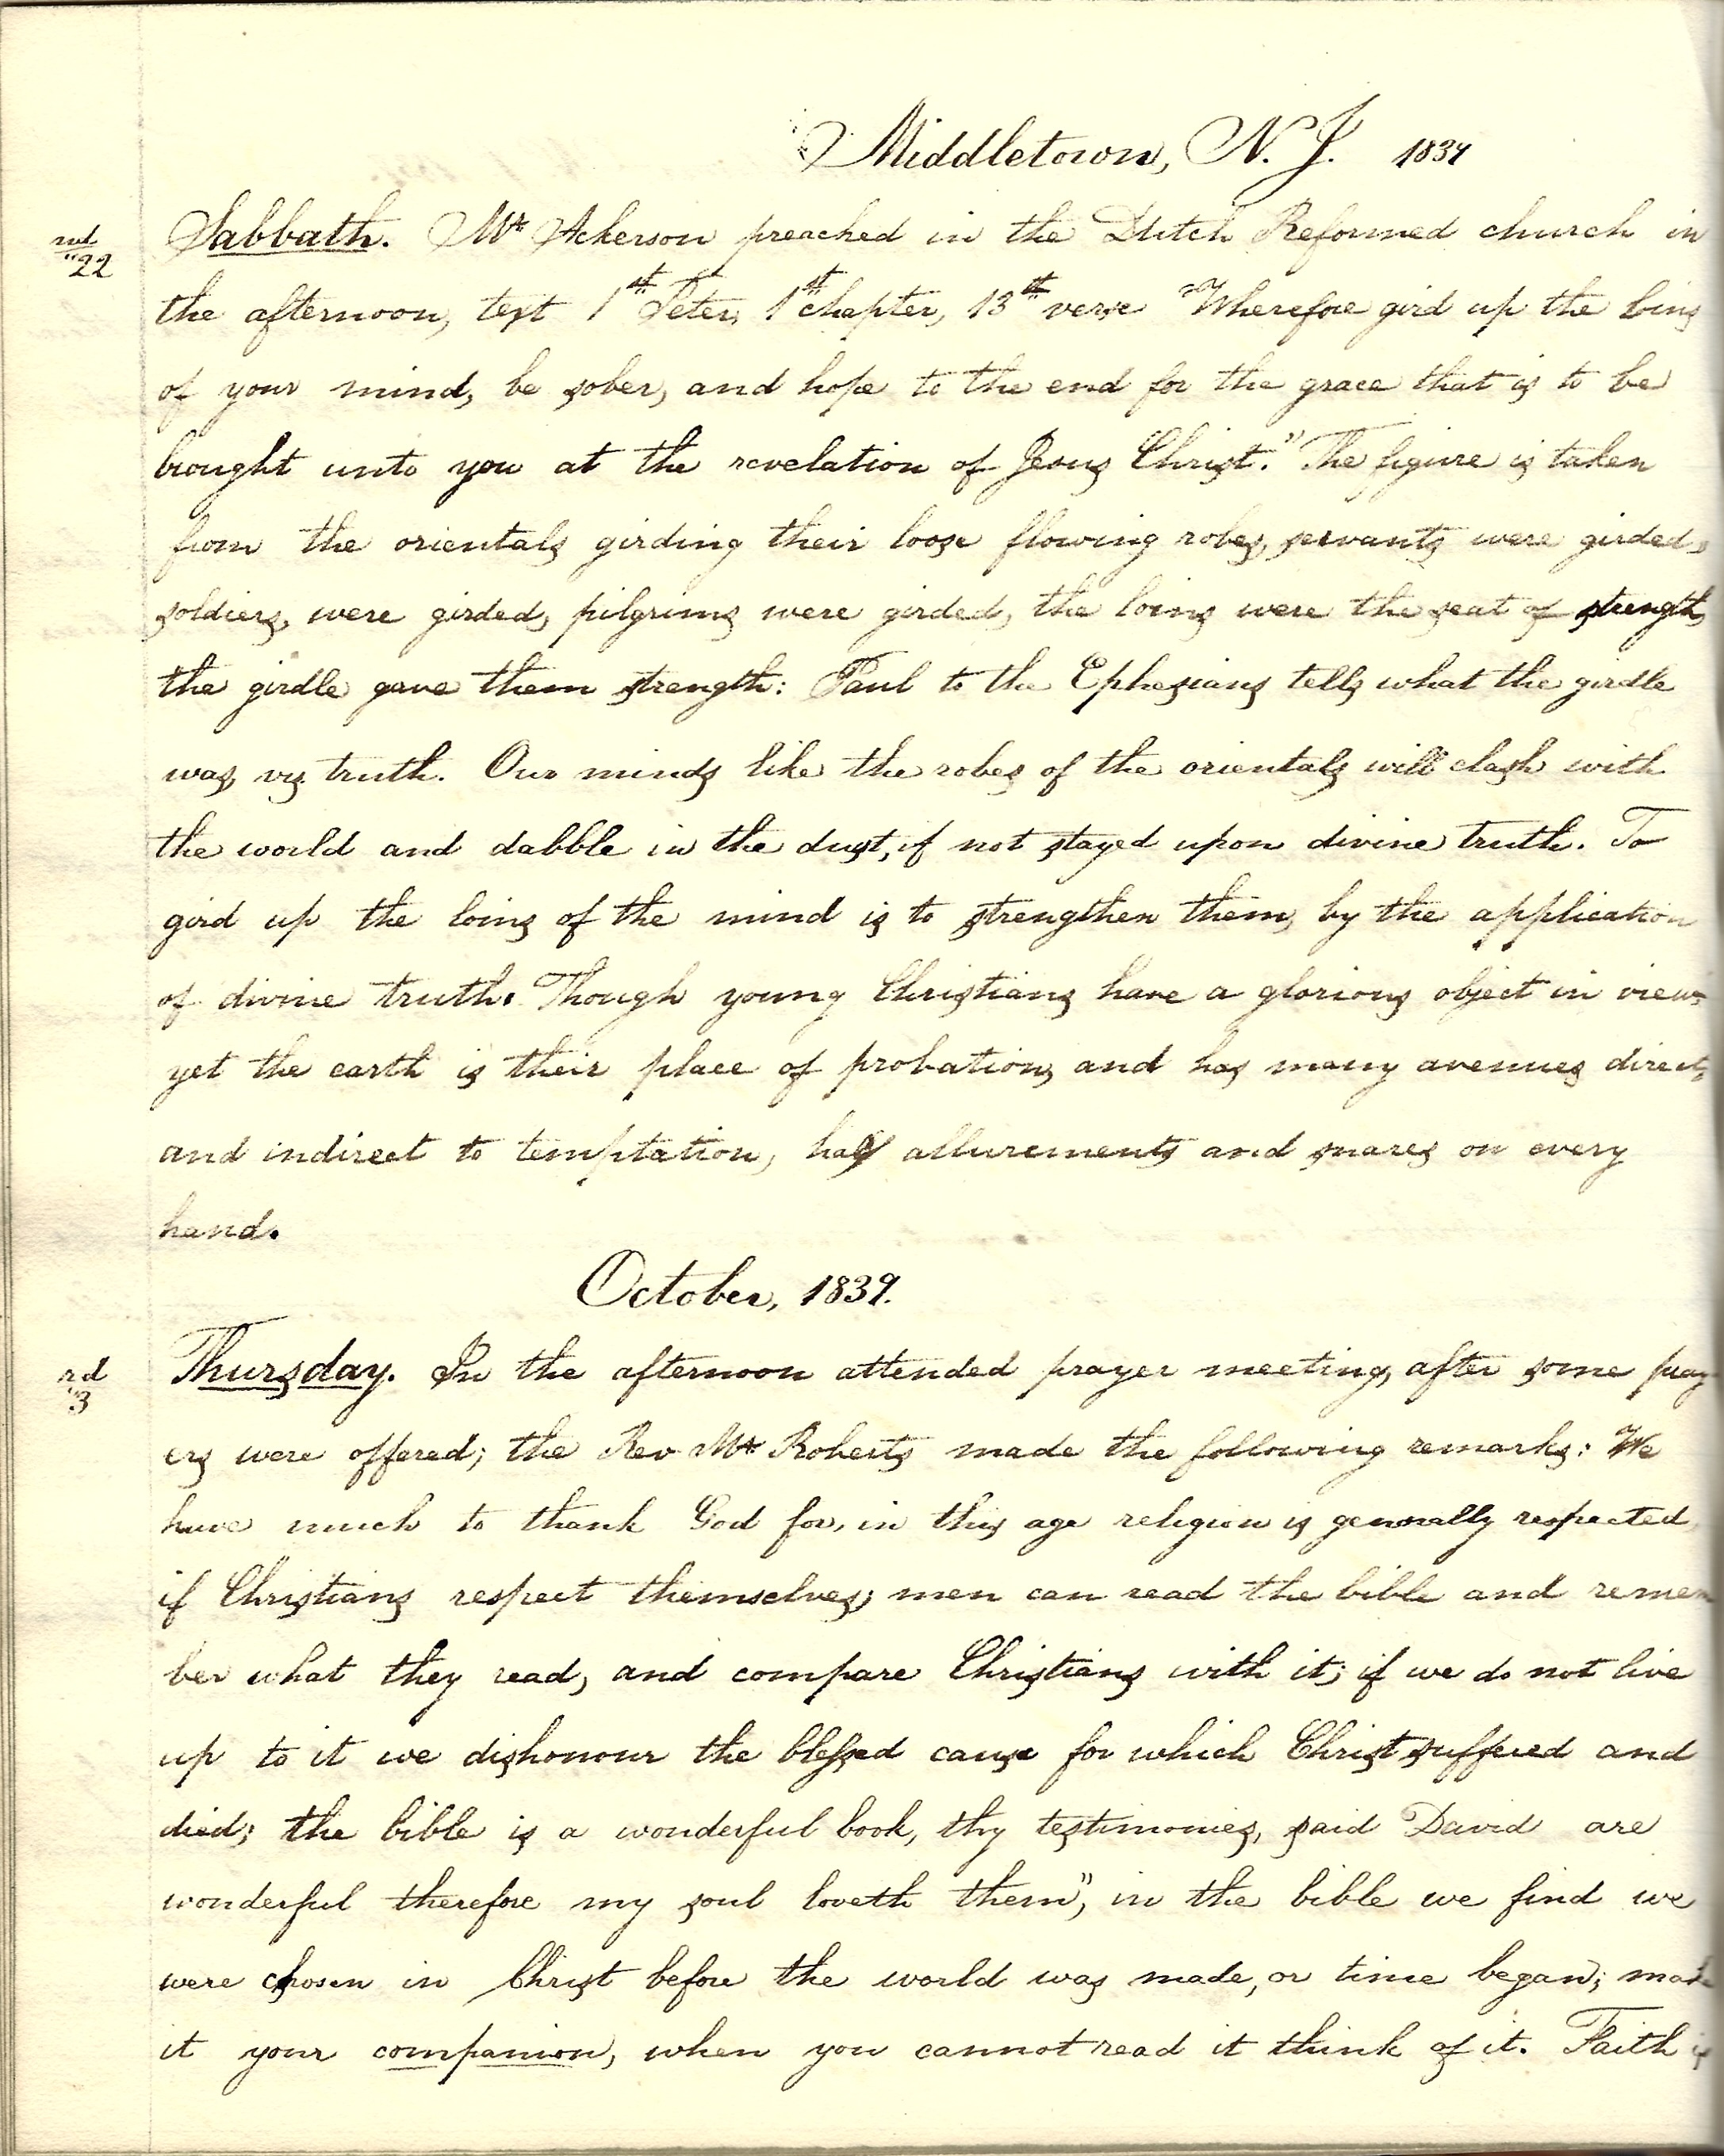 Middletown, N. J. 1839
nd
"22
Sabbath. Mr Ackerson preached in the Dutch Reformed church in
the afternoon, text 1st Peter, 1st chapter, 13th verse "Wherefore gird up the loins
of your mind, be sober, and hope to the end for the grace that is to be
brought unto you at the revelation of Jesus Christ." The figure is taken
from the orientals girding their loose flowing robes, servants were girded,
soldiers, were girded, pilgrims were girded, the loins were the seat of strength,
the girdle gave them strength: Paul to the Ephesians tells what the girdle
was, viz. truth. Our minds like the robes of the orientals will clash with
the world and dabble in the dust, if not stayed upon divine truth. To
gird up the loins of the mind is to strengthen them, by the application
of divine truth. Though young Christians have a glorious object in view
yet the earth is their place of probation, and has many avenues direct,
and indirect to temptation, has allurements and snares on every
hand.
October, 1839.
rd
"3
Thursday. In the afternoon attended prayer meeting, after some pray-
ers were offered; the Rev Mr Roberts made the following remarks: We
have much to thank God for, in this age religion is gennerally respected,
if Christians respect themselves; men can read the bible and remem
ber what they read, and compare Christians with it; if we do not live
up to it we dishonour the blessed cause for which Christ suffered and
died; the bible is a wonderful book, thy testimonies, said David are
wonderful therefore my soul loveth them", in the bible we find we
were chosen in Christ before the world was made, or time began; make
it your companion, when you cannot read it think of it. Faith is